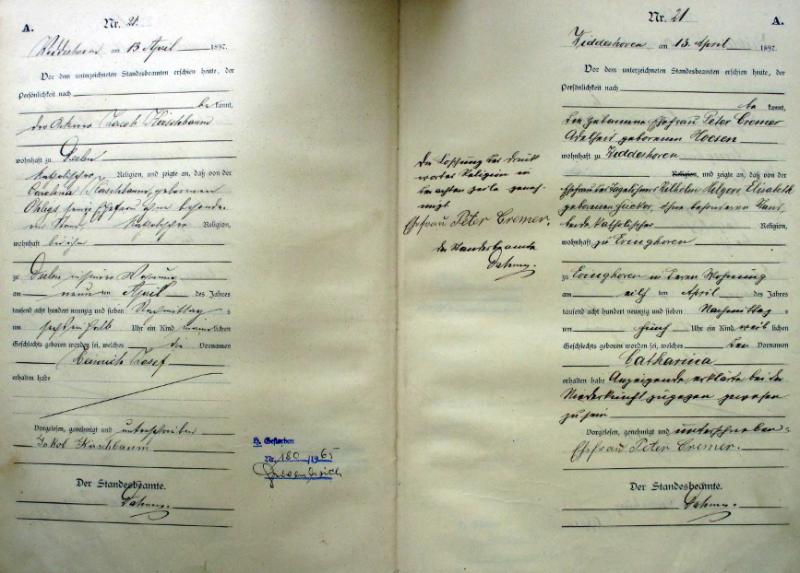 A.
Nr. 20.
am 13 April 1897.
Vor dem unterzeichneten Standesbeamten erschien heute, der
Persönlichkeit nach
be kannt,
der Ackerer Jacob Kirschbaum
wohnhaft zu
katholischer Religion, und zeigte an, daß von der
Ehefrau
Religion,
wohnhaft bei ihm
zu in seiner Wohnung
am neun ten April des Jahres
tausend acht hundert neunzig und sieben Nachmittag s
um Uhr ein Kind männlichen
Geschlechts geboren worden sei, welches die Vornamen
Heinrich Josef
erhalten habe
Vorgelesen, genehmigt und unterschrieben
Jakob Kirschbaum
Der Standesbeamte.
Dahmen.
H. Gestorben
Nr. 180 /1965
Die Löschung des Druck
wortes Religion in
geneh
migt
Ehefrau Peter Cremer.
der Standesbeamte
Dahmen.
Nr. 21
A.
Widdeshoven am 13. April 1897.
Vor dem unterzeichneten Standesbeamten erschien heute, der
Persönlichkeit nach
be kannt,
die Hebamme Ehefrau Peter Cremer
Adelheid geborenen Hoesen
wohnhaft zu Widdeshoven
Religion, und zeigte an, daß von der
Ehefrau des Tagelöhners Wilhelm Elisabeth
geborenen ohne besonderen Stand,
beide katholischer Religion,
wohnhaft zu
zu in deren Wohnung
am eilf ten April des Jahres
tausend acht hundert neunzig und sieben Nachmittag s
um fünf Uhr ein Kind weib lichen
Geschlechts geboren worden sei, welches den Vornamen
Catharina
erhalten habe Anzeigende erklärte bei der
Niederkunft zugegen gewesen
zu sein
Vorgelesen, genehmigt und unterschrieben
Ehefrau Peter Cremer.
Der Standesbeamte.
Dahmen.